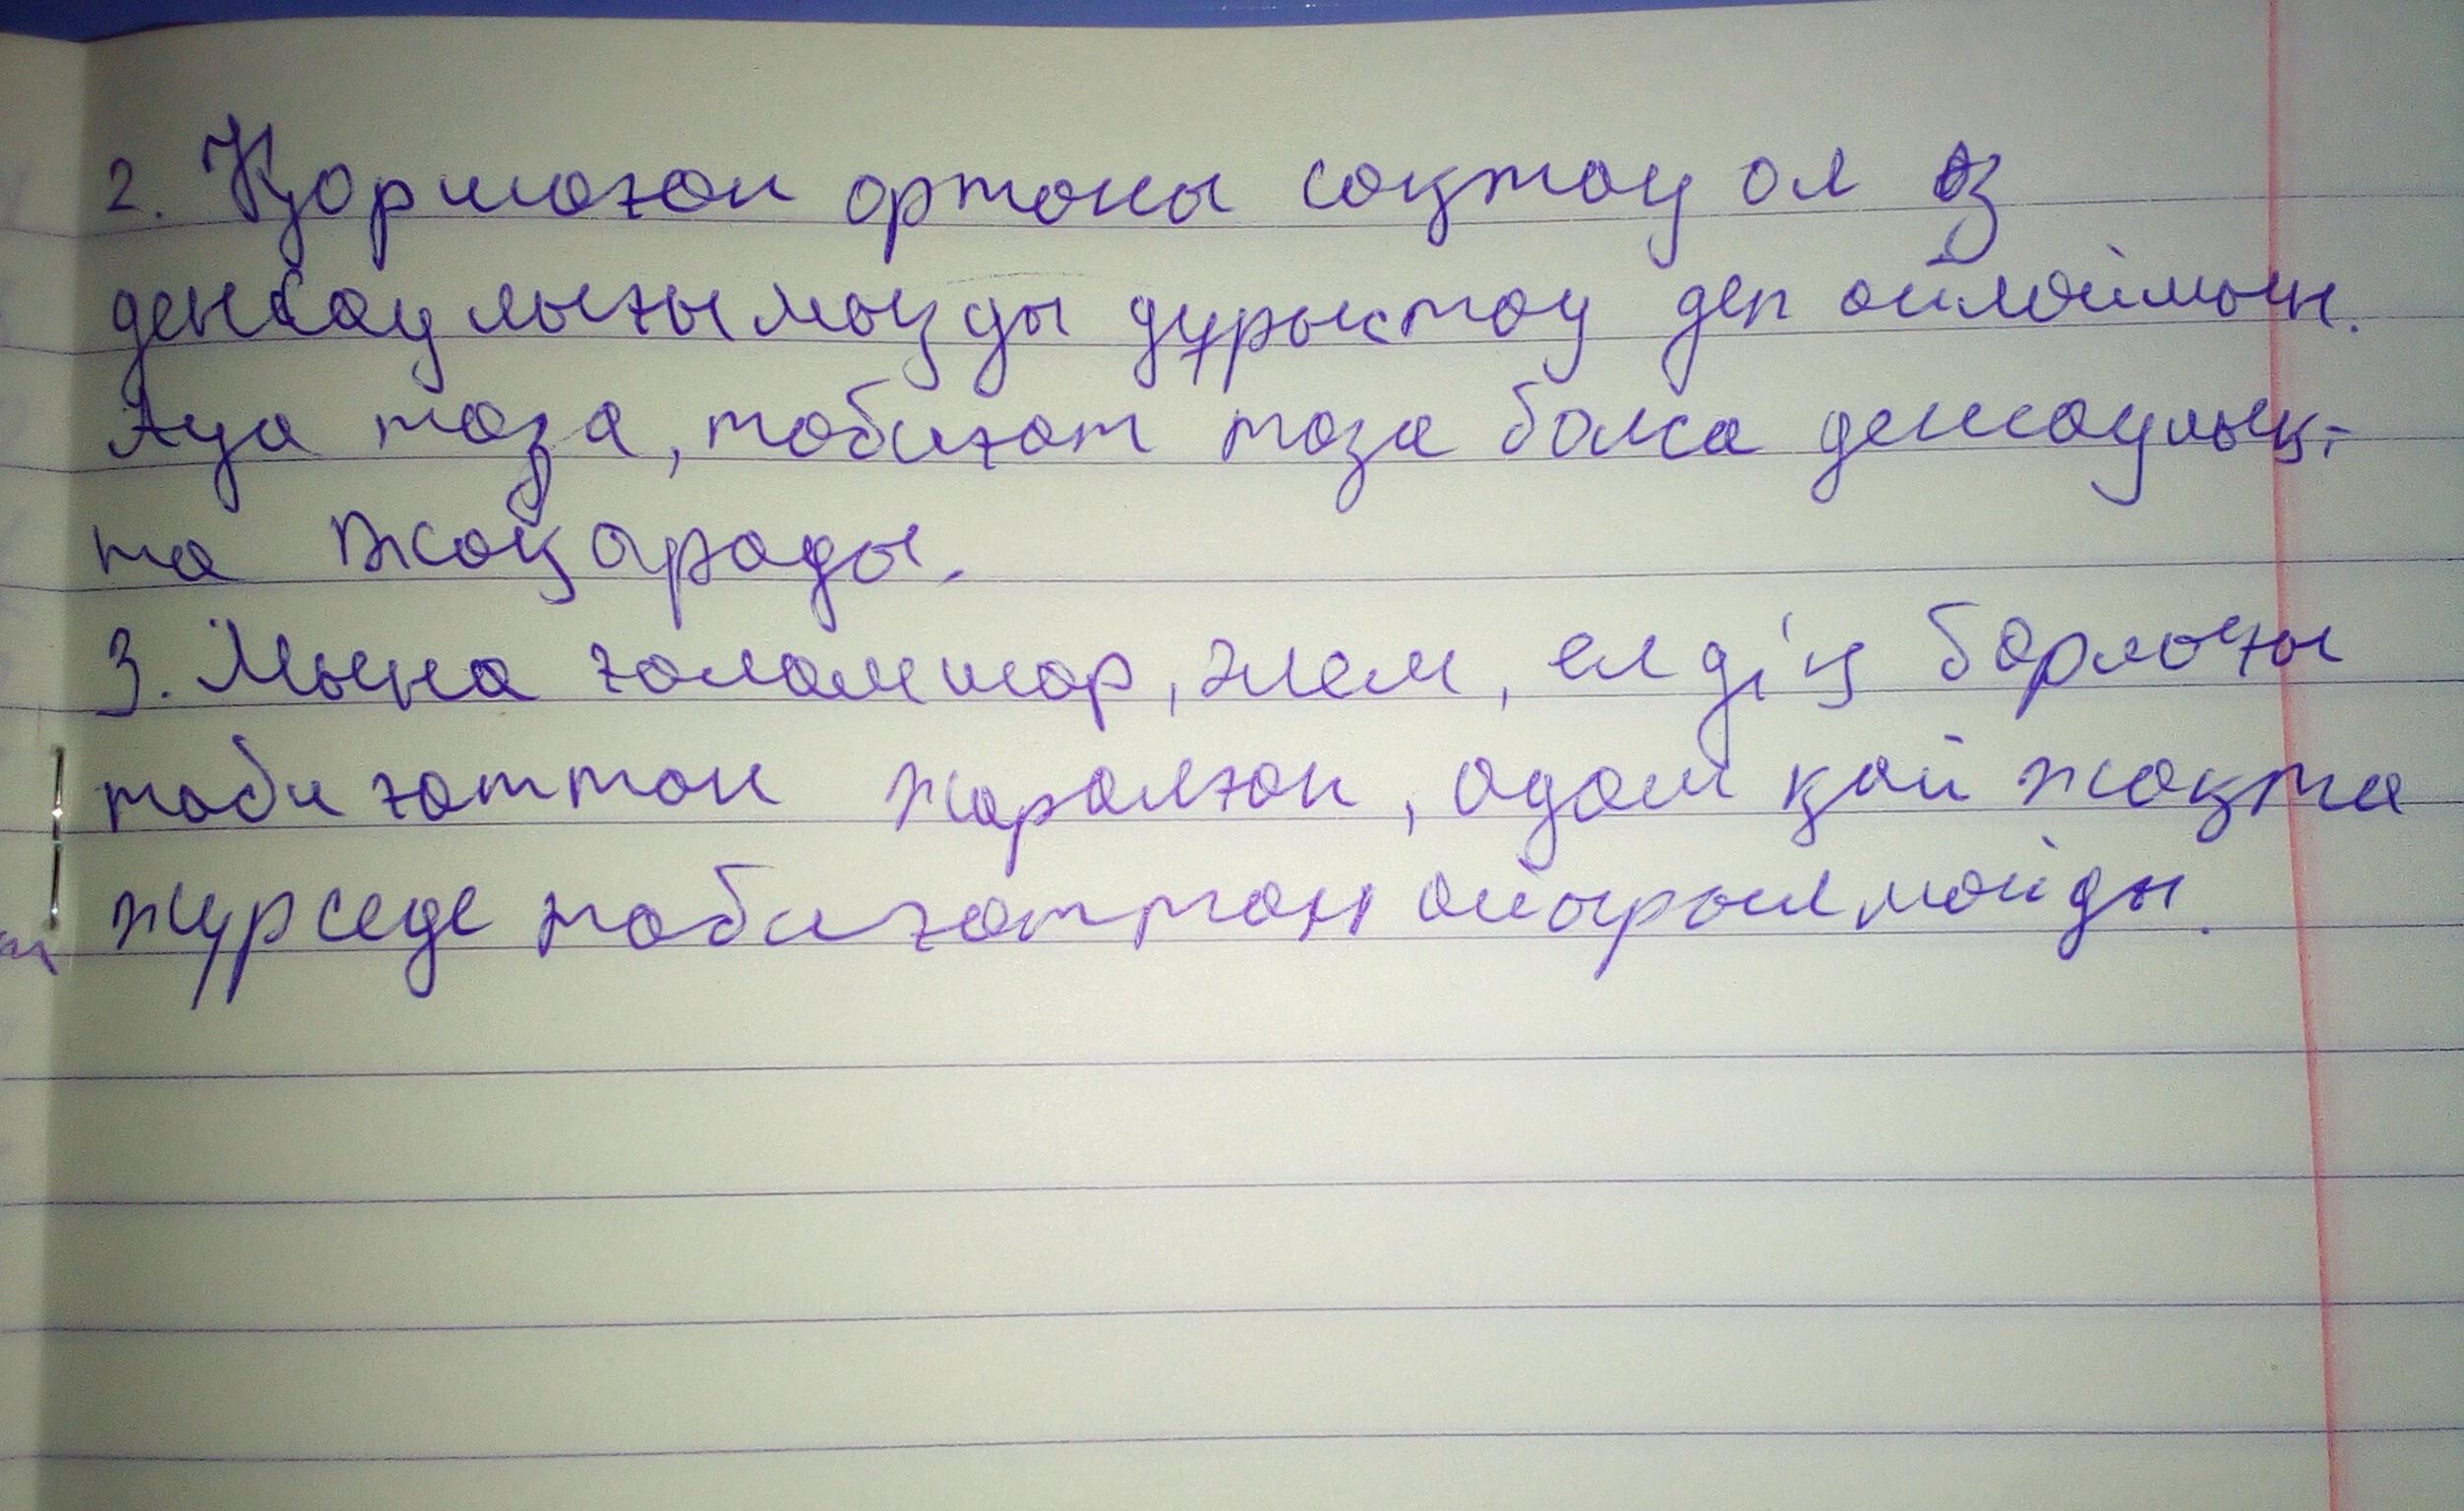 2. Қоршаған ортаны сақтау ол өз
денсаулығымызды дұрыстау деп ойлаймын.
Ауа таза, табиғат таза болса денсаулық-
та жақарады.
3. Мына ғаламшар, әлем, елдің барлығы
табиғаттан жаралған, адам қай жақта
жүрседе табиғаттан айырылмайды.